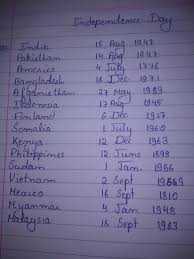 Independence Day
India 15 Aug 1947
Pakisthan 14 Aug 1947
America 4 July 1776
Bangladesh 16 Dec 1971
Afganisthan 27 May 1989
Indonesia 17 Aug 1945
Finland 6 Dec 1917
Somalia 1 July 1960
Kenya 12 Dec 1963
Philippines 12 June 1898
Sudan 1 Jan. 1956
Vietnam 2 Sept
Mexico 16 Sept 1810
Myanmar 4 Jan 1948
Malaysia 16 Sept 1963